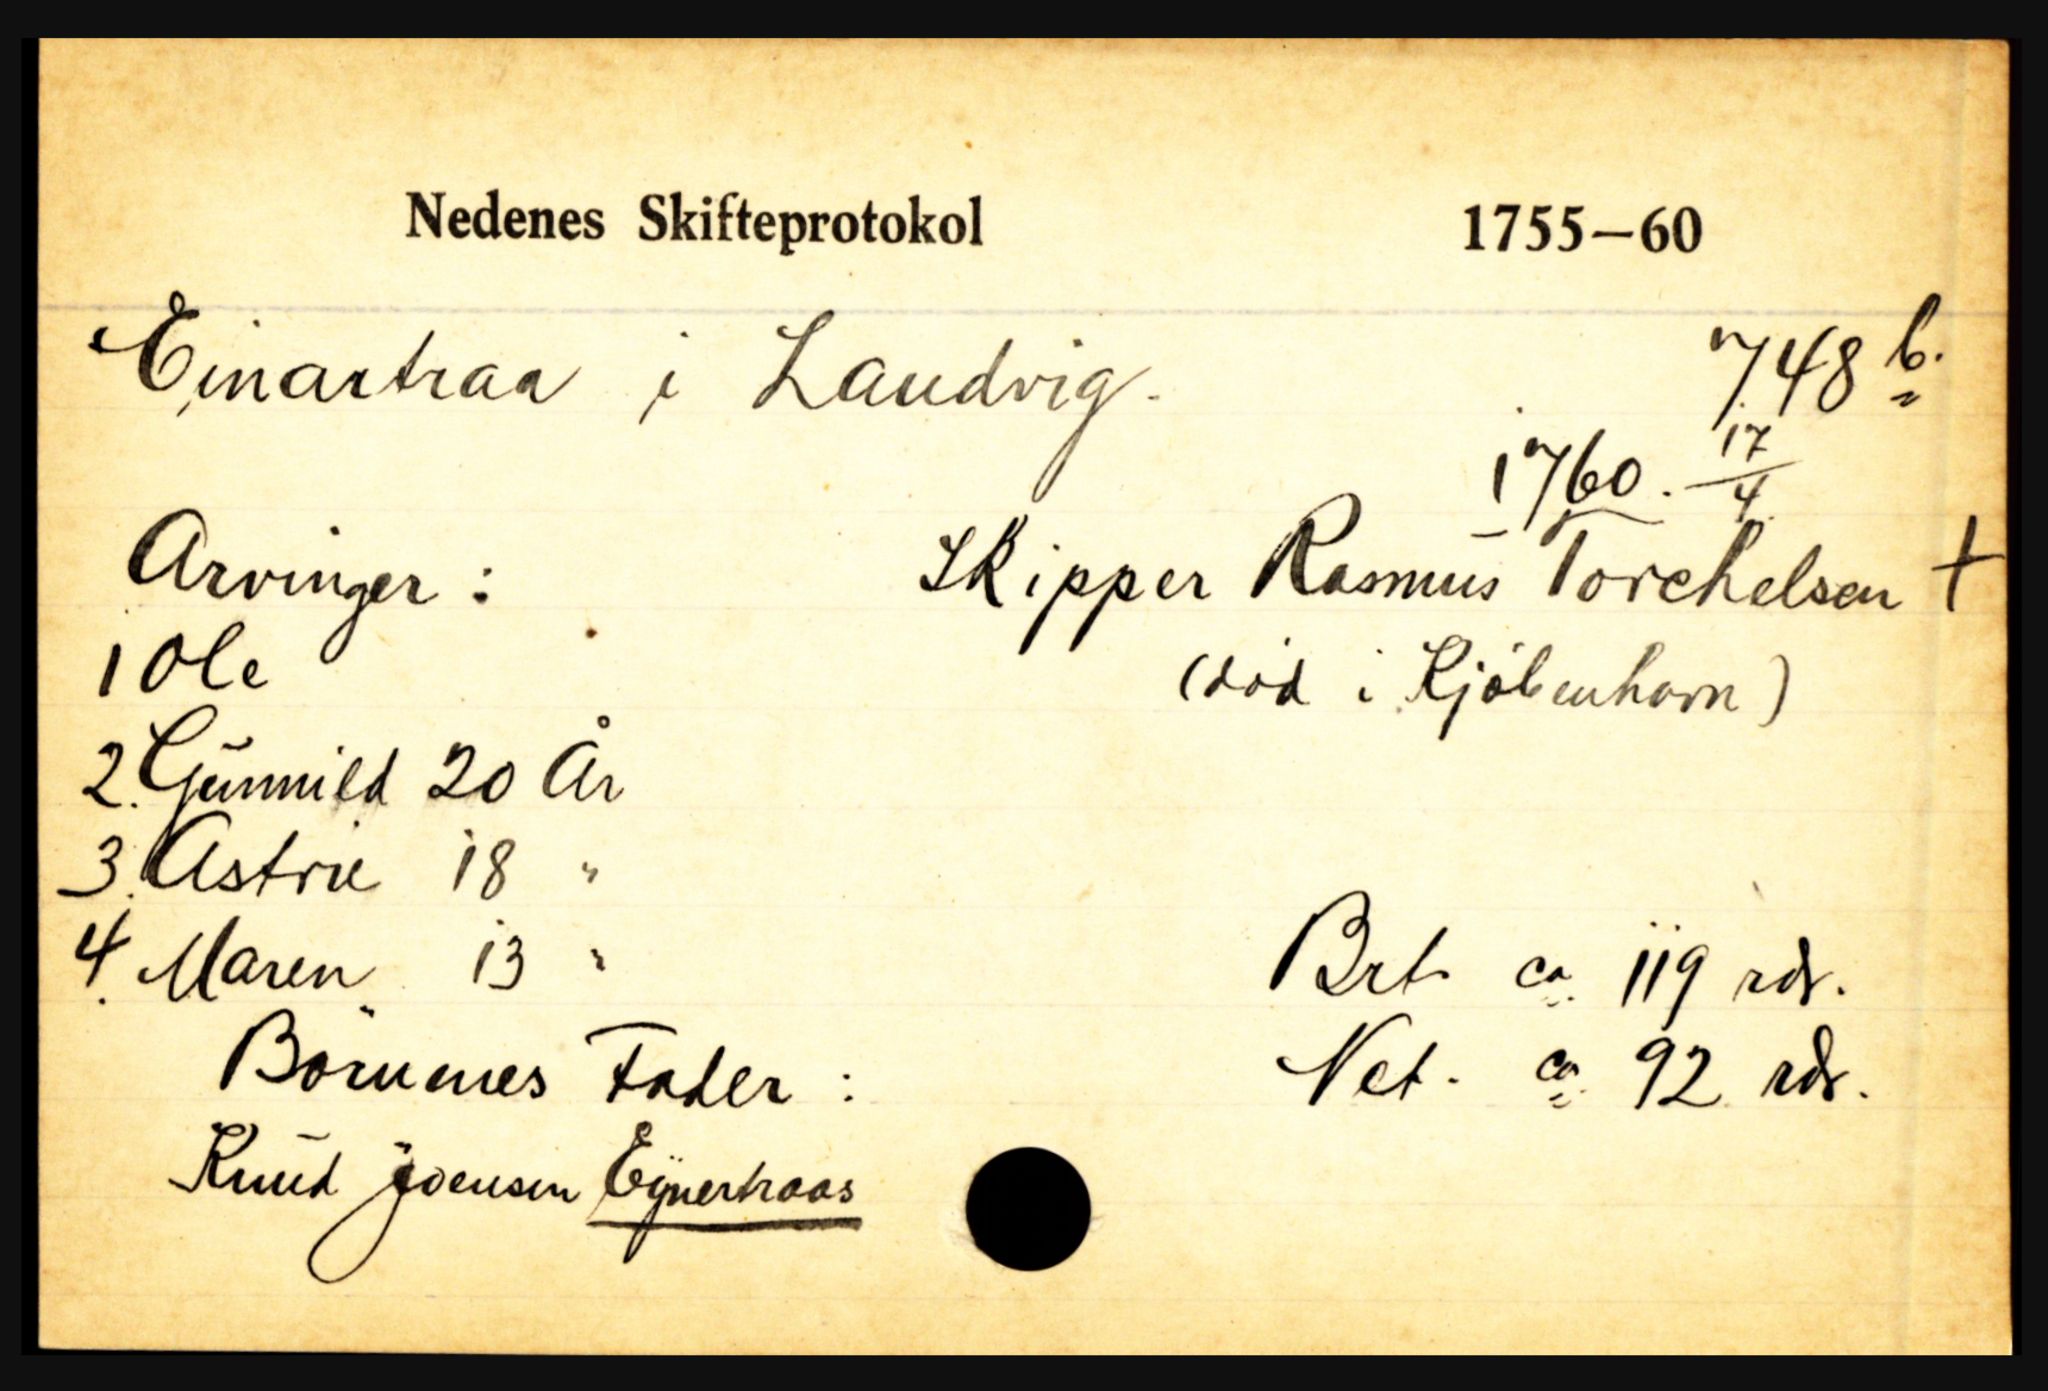 Nedenes Skifteprotokol 1755—60
Einartraa i Landvig. 748 b.
1760. 17/4
Arvinger: Skipper Rasmus Torchelsen +
1 Ole (död i Kjöbenhavn)
2. Gunnild 20 År
3. Astrie 18 "
4. Maren 13 " Brt ca. 119 rdr.
Börnenes Fader: Net. ca. 92 rdr.
Knud Joensen Eÿnertraas